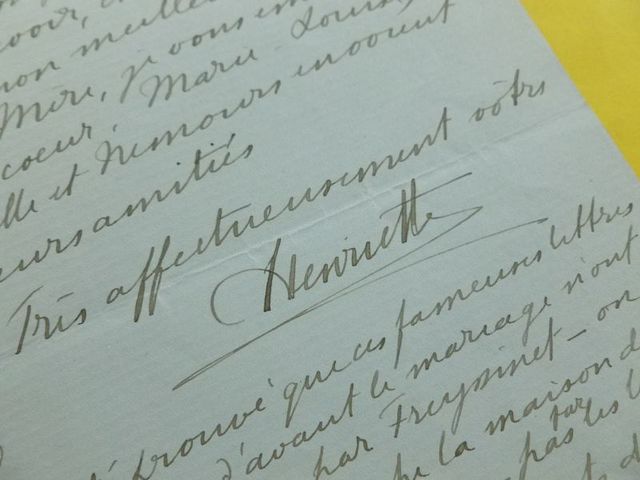 mon meille
Mère, je vous em
coeur, Marie Louise
elle et Nemours envoient
eurs amitiés
Très affectueusement vôtre
Henriette
prouvé que ces fameuses lettres
d'avant le mariage n'ont
par Freyssinet - on
la maison d
pas les l